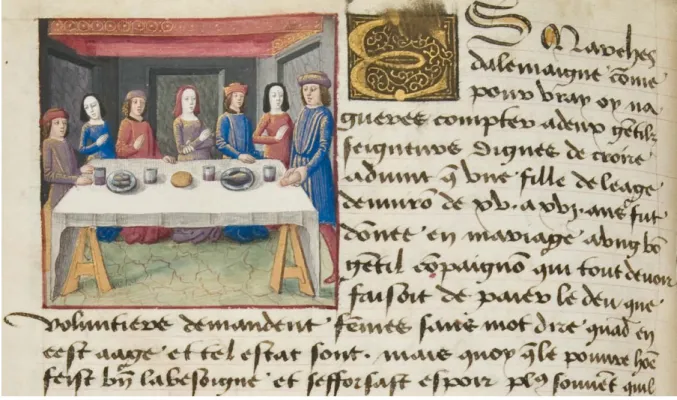 ES Marches
dalemaigne cõme
pour vray oy na
gueres compter a deux gẽtilz
seigneurs dignes de croire
aduint q̃ vne fille de leage
demirõ de xv. a xvi. ans fut
donee en mariage a vng bõ
gẽtil cõpaignõ qui tout deuoir
faisoit de paier le deu que
voluntiers demandent fẽmes sans mot dire quãd en
cest aage et tel estat sont. mais quoy q̃ le pouure hõe
feist bñ la besoigne et sefforsast espoir pl9 souuẽt quil